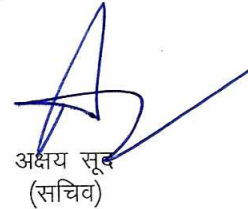 अक्षय सूद
(सचिव)